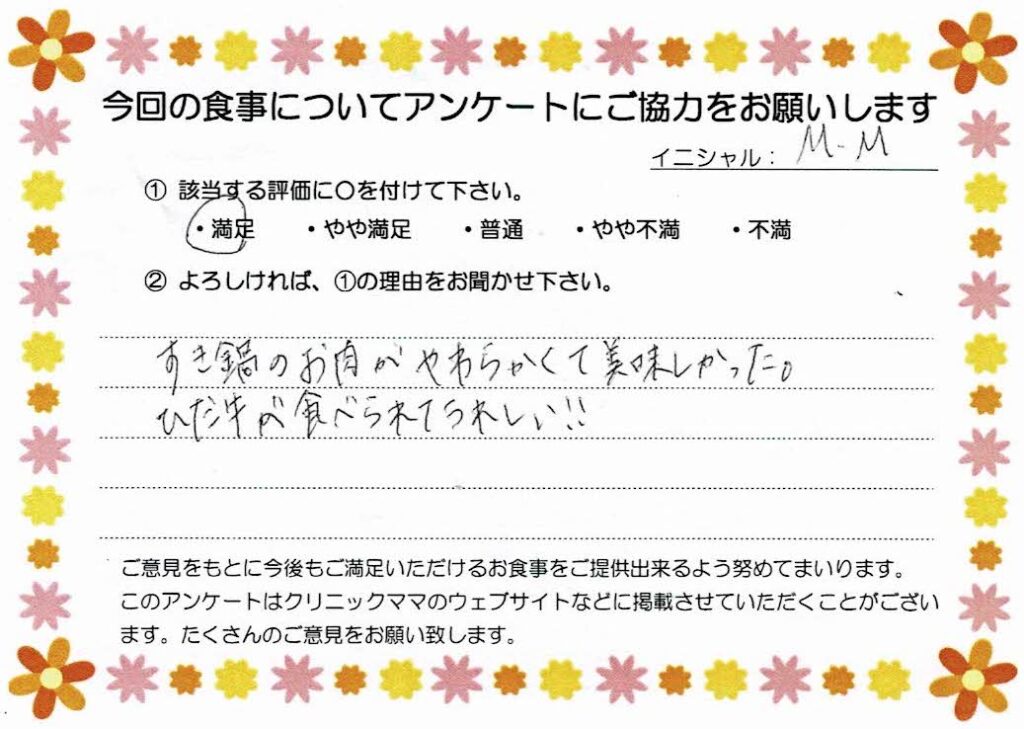 今回の食事についてアンケートにご協力をお願いします
イニシャル： M-M
① 該当する評価に〇を付けて下さい。
・満足 ・やや満足 ・普通 ・やや不満 ・不満
② よろしければ、①の理由をお聞かせ下さい。
すき鍋のお肉がやわらかくて美味しかった。
ひだ牛が食べられてうれしい!!
ご意見をもとに今後もご満足いただけるお食事をご提供出来るよう努めてまいります。
このアンケートはクリニックママのウェブサイトなどに掲載させていただくことがござい
ます。たくさんのご意見をお願い致します。